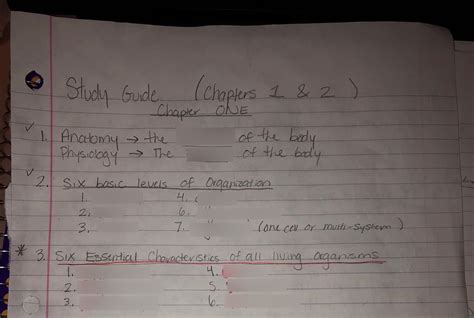 Study Guide (Chapters 1 & 2)
Chapter ONE
1. Anatomy → the of the body
Physiology → The of the body
2. Six basic levels of Organization
1. 4.
2. 6.
3. 7. (one cell or multi-system)
* 3. Six Essential Characteristics of all living organisms
1. 4.
2. 5.
3. 6.